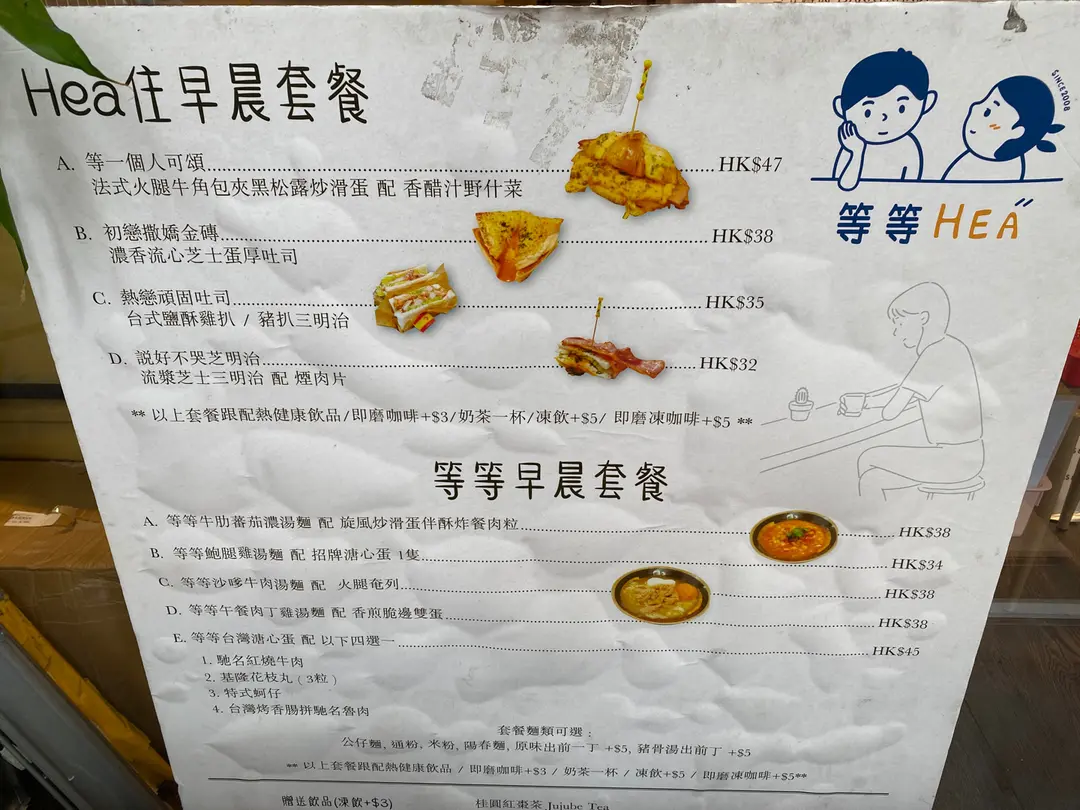 Hea住早晨套餐
SINCE2008
A. 等一個人可頌 HK$47
法式火腿牛角包夾黑松露炒滑蛋 配 香醋汁野什菜
等等HEA
B. 初戀撒嬌金磚 HK$38
濃香流心芝士蛋厚吐司
C. 熱戀頑固吐司 HK$35
台式鹽酥雞扒 / 豬扒三明治
D. 説好不哭芝明治 HK$32
流漿芝士三明治 配 煙肉片
** 以上套餐跟配熱健康飲品/即磨咖啡+$3/奶茶一杯/凍飲+$5/ 即磨凍咖啡+$5 **
等等早晨套餐
A. 等等牛肋蕃茄濃湯麵 配 旋風炒滑蛋伴酥炸餐肉粒 HK$38
B. 等等鮑腿雞湯麵 配 招牌溏心蛋 1隻 HK$34
C. 等等沙嗲牛肉湯麵 配 火腿奄列 HK$38
D. 等等午餐肉丁雞湯麵 配 香煎脆邊雙蛋 HK$38
E. 等等台灣溏心蛋 配 以下四選一 HK$45
1. 馳名紅燒牛肉
2. 基隆花枝丸 ( 3粒 )
3. 特式蚵仔
4. 台灣烤香腸拼馳名魯肉
套餐麵類可選 :
公仔麵, 通粉, 米粉, 陽春麵, 原味出前一丁 +$5, 豬骨湯出前丁 +$5
** 以上套餐跟配熱健康飲品 / 即磨咖啡+$3 / 奶茶一杯 / 凍飲+$5 / 即磨凍咖啡+$5**
贈送飲品(凍飲+$3) 桂圓紅棗茶 Jujube Tea